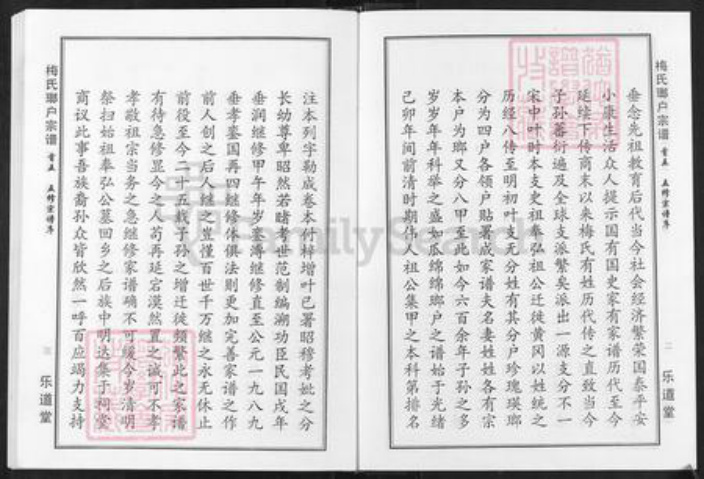 梅氏瑯户宗谱 首五 五修宗谱序
二
乐道堂
垂念先祖教育后代当今社会经济繁荣国泰平安
小康生活众人提示国有国史家有家谱历代至今
延续下传商末以来梅氏有姓历代传之直致当今
子孙蕃衍遍及全球支派繁矣派出一源支分不一
宋中叶时本支史祖奉弘祖公迁徙黄冈以姓统之
历经八传至明初叶支无分姓有其分户珍瑰瑛瑯
分为四户各领户贴署成家谱夫名妻姓姓各有宗
本户为瑯又分八甲至此如今六百余年子孙之多
岁岁年年科举之盛如瓜绵绵瑯户之谱始于光绪
己卯年间前清时期伟人祖公集甲之本科第排名
注本列字勒成卷本付梓增叶已署昭穆考妣之分
长幼尊卑昭然若睹考世范制编溯功臣民国戌年
垂润继修甲午年岁銮溥继修直至公元一九八九
垂孝銮国再四继修体俱法则更加完善家谱之作
前人创之后人继之岂惟百世千万继之永无休止
前役至今二十五载子孙之增迁徙频繁此之家谱
有待急修显今之人苟再延宕漠然置之诚可不孝
孝敬祖宗当务之急继修家谱确不可缓今岁清明
祭扫始祖奉弘公墓回乡之后族中明达集于祠堂
商议此事吾族裔孙众皆欣然一呼百应竭力支持
梅氏瑯户宗谱 首五 五修宗谱序
三
乐道堂
FamilySearch